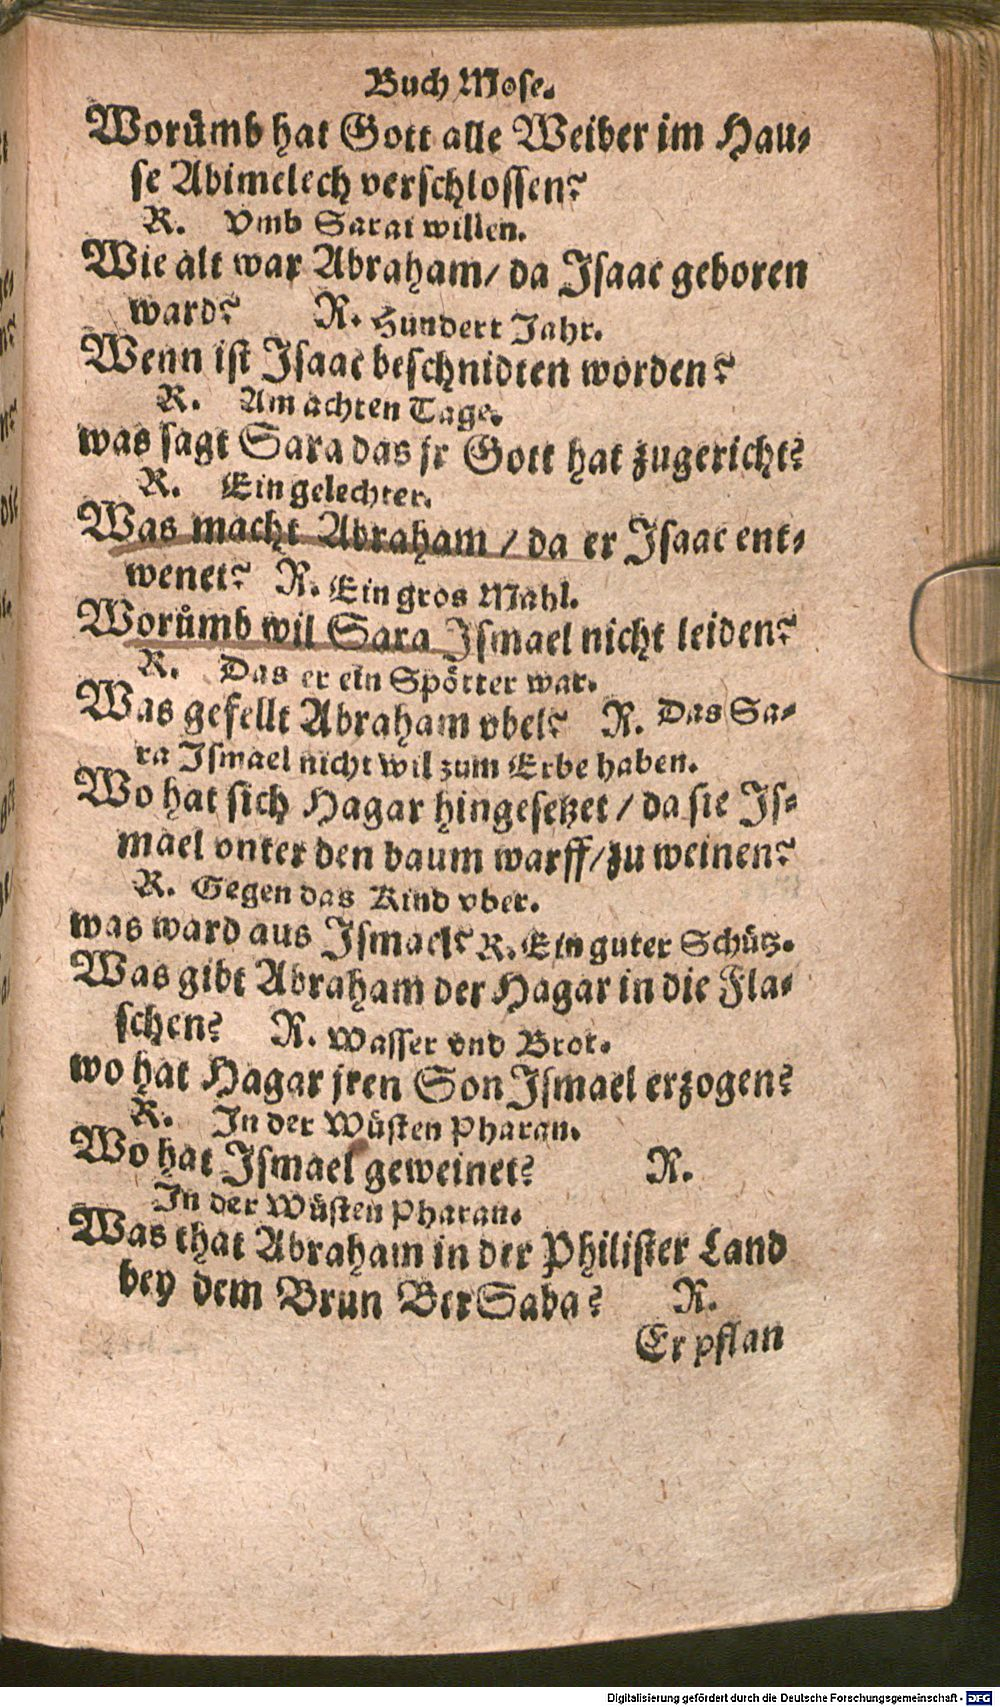 Buch Mose.
Worůmb hat Gott alle Weiber im Hau⸗
se Abimelech verschlossen?
R. Vmb Sarai willen.
Wie alt war Abraham/ da Isaac geboren
ward? R. Hundert Jahr.
Wenn ist Isaac beschnidten worden?
R. Am achten Tage.
was sagt Sara das jr Gott hat zugericht?
R. Ein gelechter.
Was macht Abraham / da er Isaac ent⸗
wenet? R. Ein gros Mahl.
Worůmb wil Sara Ismael nicht leiden?
R. Das er ein Spötter war.
Was gefellt Abraham vbel? R. Das Sa⸗
ra Ismael nicht wil zum Erbe haben.
Wo hat sich Hagar hingesetzet / da sie Is⸗
mael vnter den baum warff/ zu weinen?
R. Gegen das Kind vber.
was ward aus Ismael? R. Ein guter Schütz.
Was gibt Abraham der Hagar in die Fla⸗
schen? R. Wasser vnd Brot.
wo hat Hagar jren Son Ismael erzogen?
R. In der Wüsten Pharan.
Wo hat Ismael geweinet? R.
In der Wüsten Pharan.
Was that Abraham in der Philister Land
bey dem Brun BerSaba? R.
Er pflan
Digitalisierung gefördert durch die Deutsche Forschungsgemeinschaft - DFG